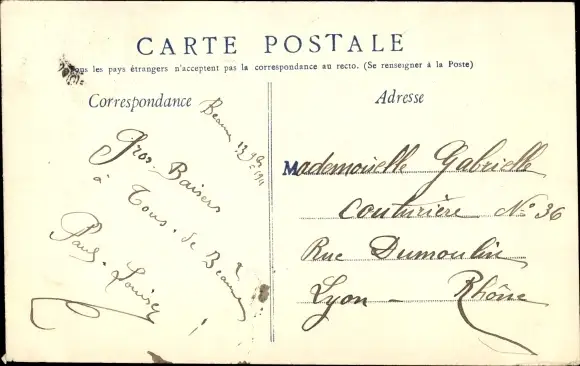 CARTE POSTALE
Tous les pays étrangers n'acceptent pas la correspondance au recto. (Se renseigner à la Poste)
Correspondance
Beaune
Gros. Baisers
à Tous. de Beaune
Paul. Louise
Adresse
Mademoiselle Gabrielle
Couturière N° 36
Rue Dumoulin
Lyon - Rhône